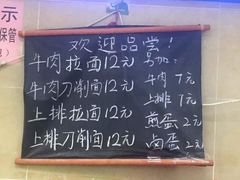 示
保管
欢迎品尝！
牛肉拉面12元
牛肉刀削面12元
上排拉面12元
上排刀削面12元
另加：
牛肉7元
上排7元
煎蛋2元
卤蛋2元